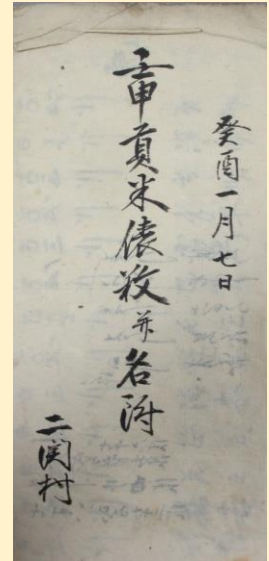 癸酉一月七日
壬申貢米俵数并名附
二関村